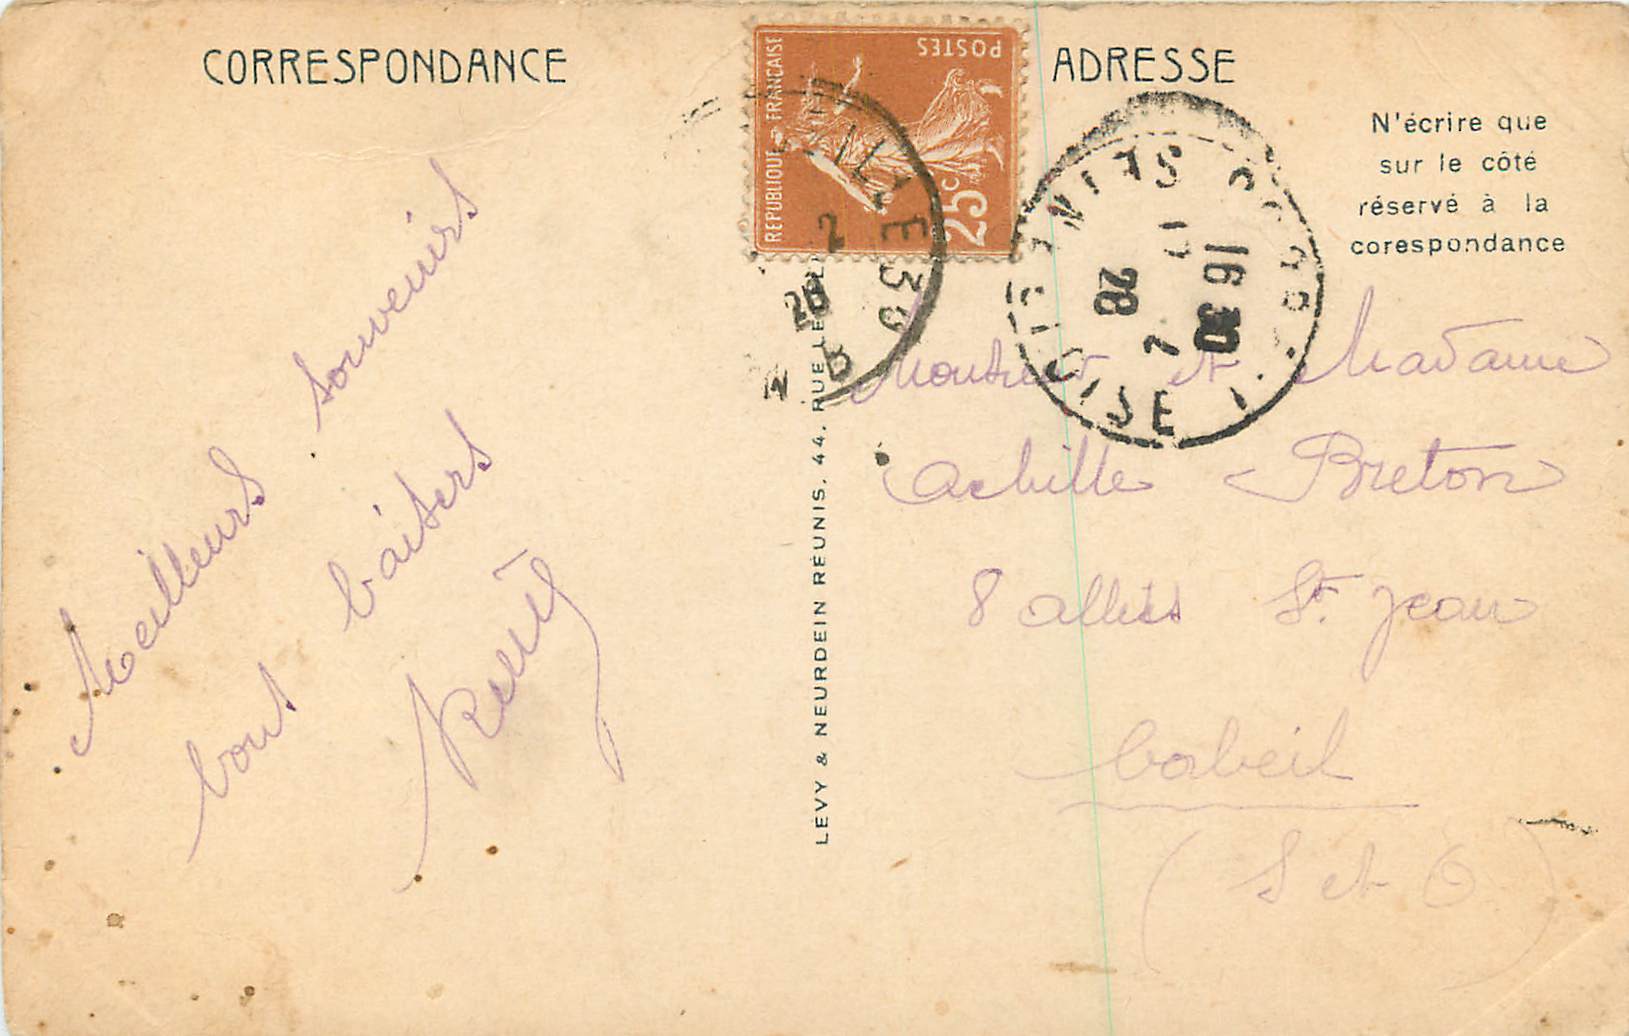 CORRESPONDANCE
Meilleurs souvenirs
bons baisers
RÉPUBLIQUE FRANÇAISE
POSTES
25c
LÉVY & NEURDEIN RÉUNIS, 44, RUE LE
ADRESSE
N'écrire que
sur le côté
réservé à la
corespondance
SEINE
OISE
16 30
28
Monsieur et Madame
Achille Breton
8 allées St Jean
Corbeil
(S et O)